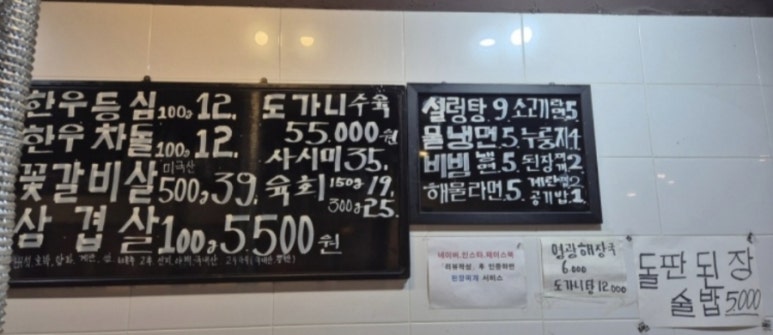 한우등심 100g 12.
한우차돌 100g 12.
미국산
꽃갈비살 500g 39.
삼겹살 100g 5500원
도가니수육
55.000원
사시미 35.
육회 150g 19.
300g 25.
설렁탕 9.
물냉면 5.
비빔 5.
해물라면 5.
소고기 5.
누룽지 4
된장찌개 2
계란찜 2
공기밥 1
네이버,인스타,페이스북
리뷰작성, 후 인증하면
된장찌개 서비스
해장국
6.000
도가니탕 12,000
돌판된장
술밥 5000